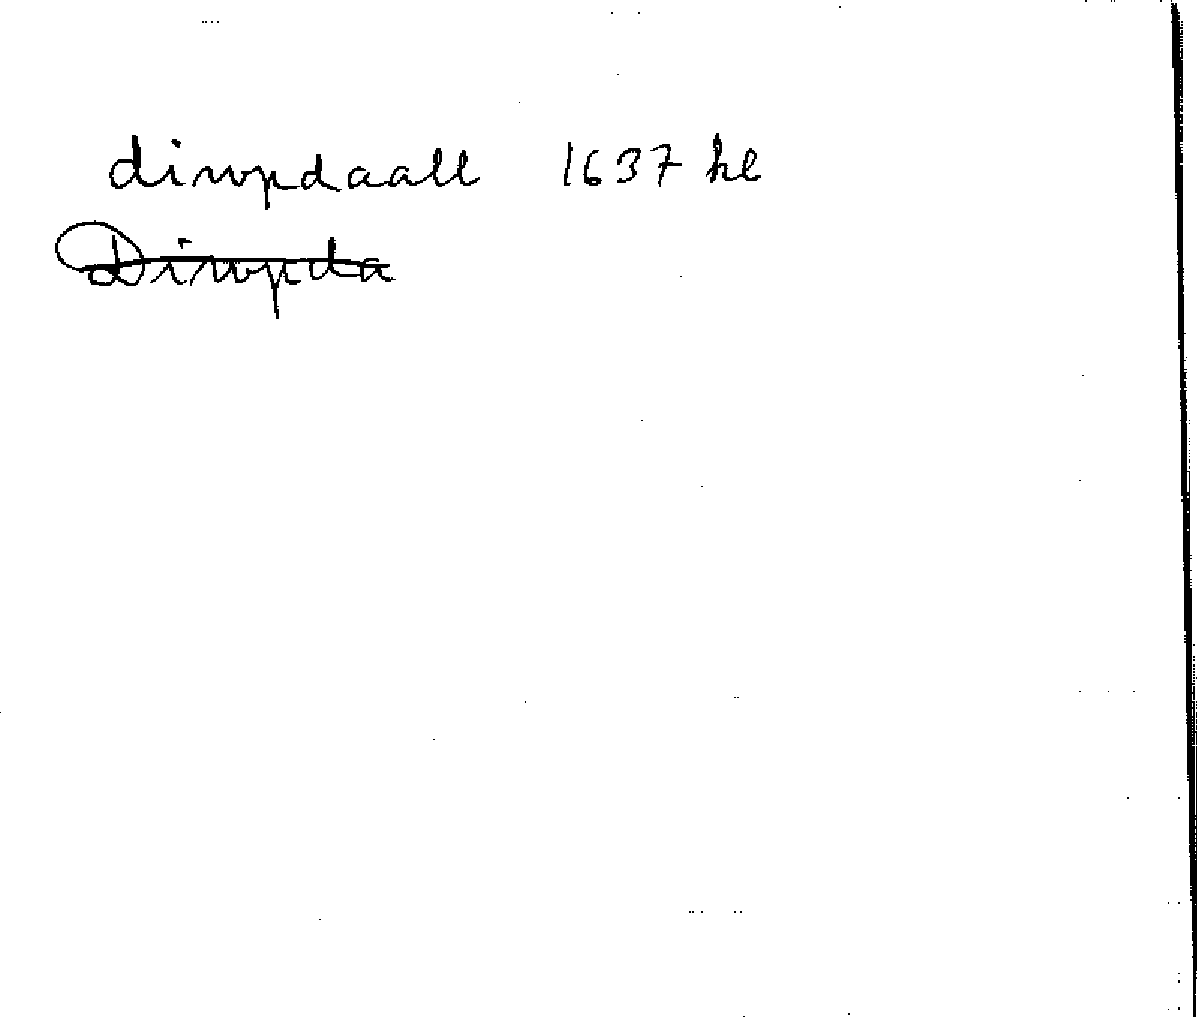 diwpdaall 1637 hl
Diwpda